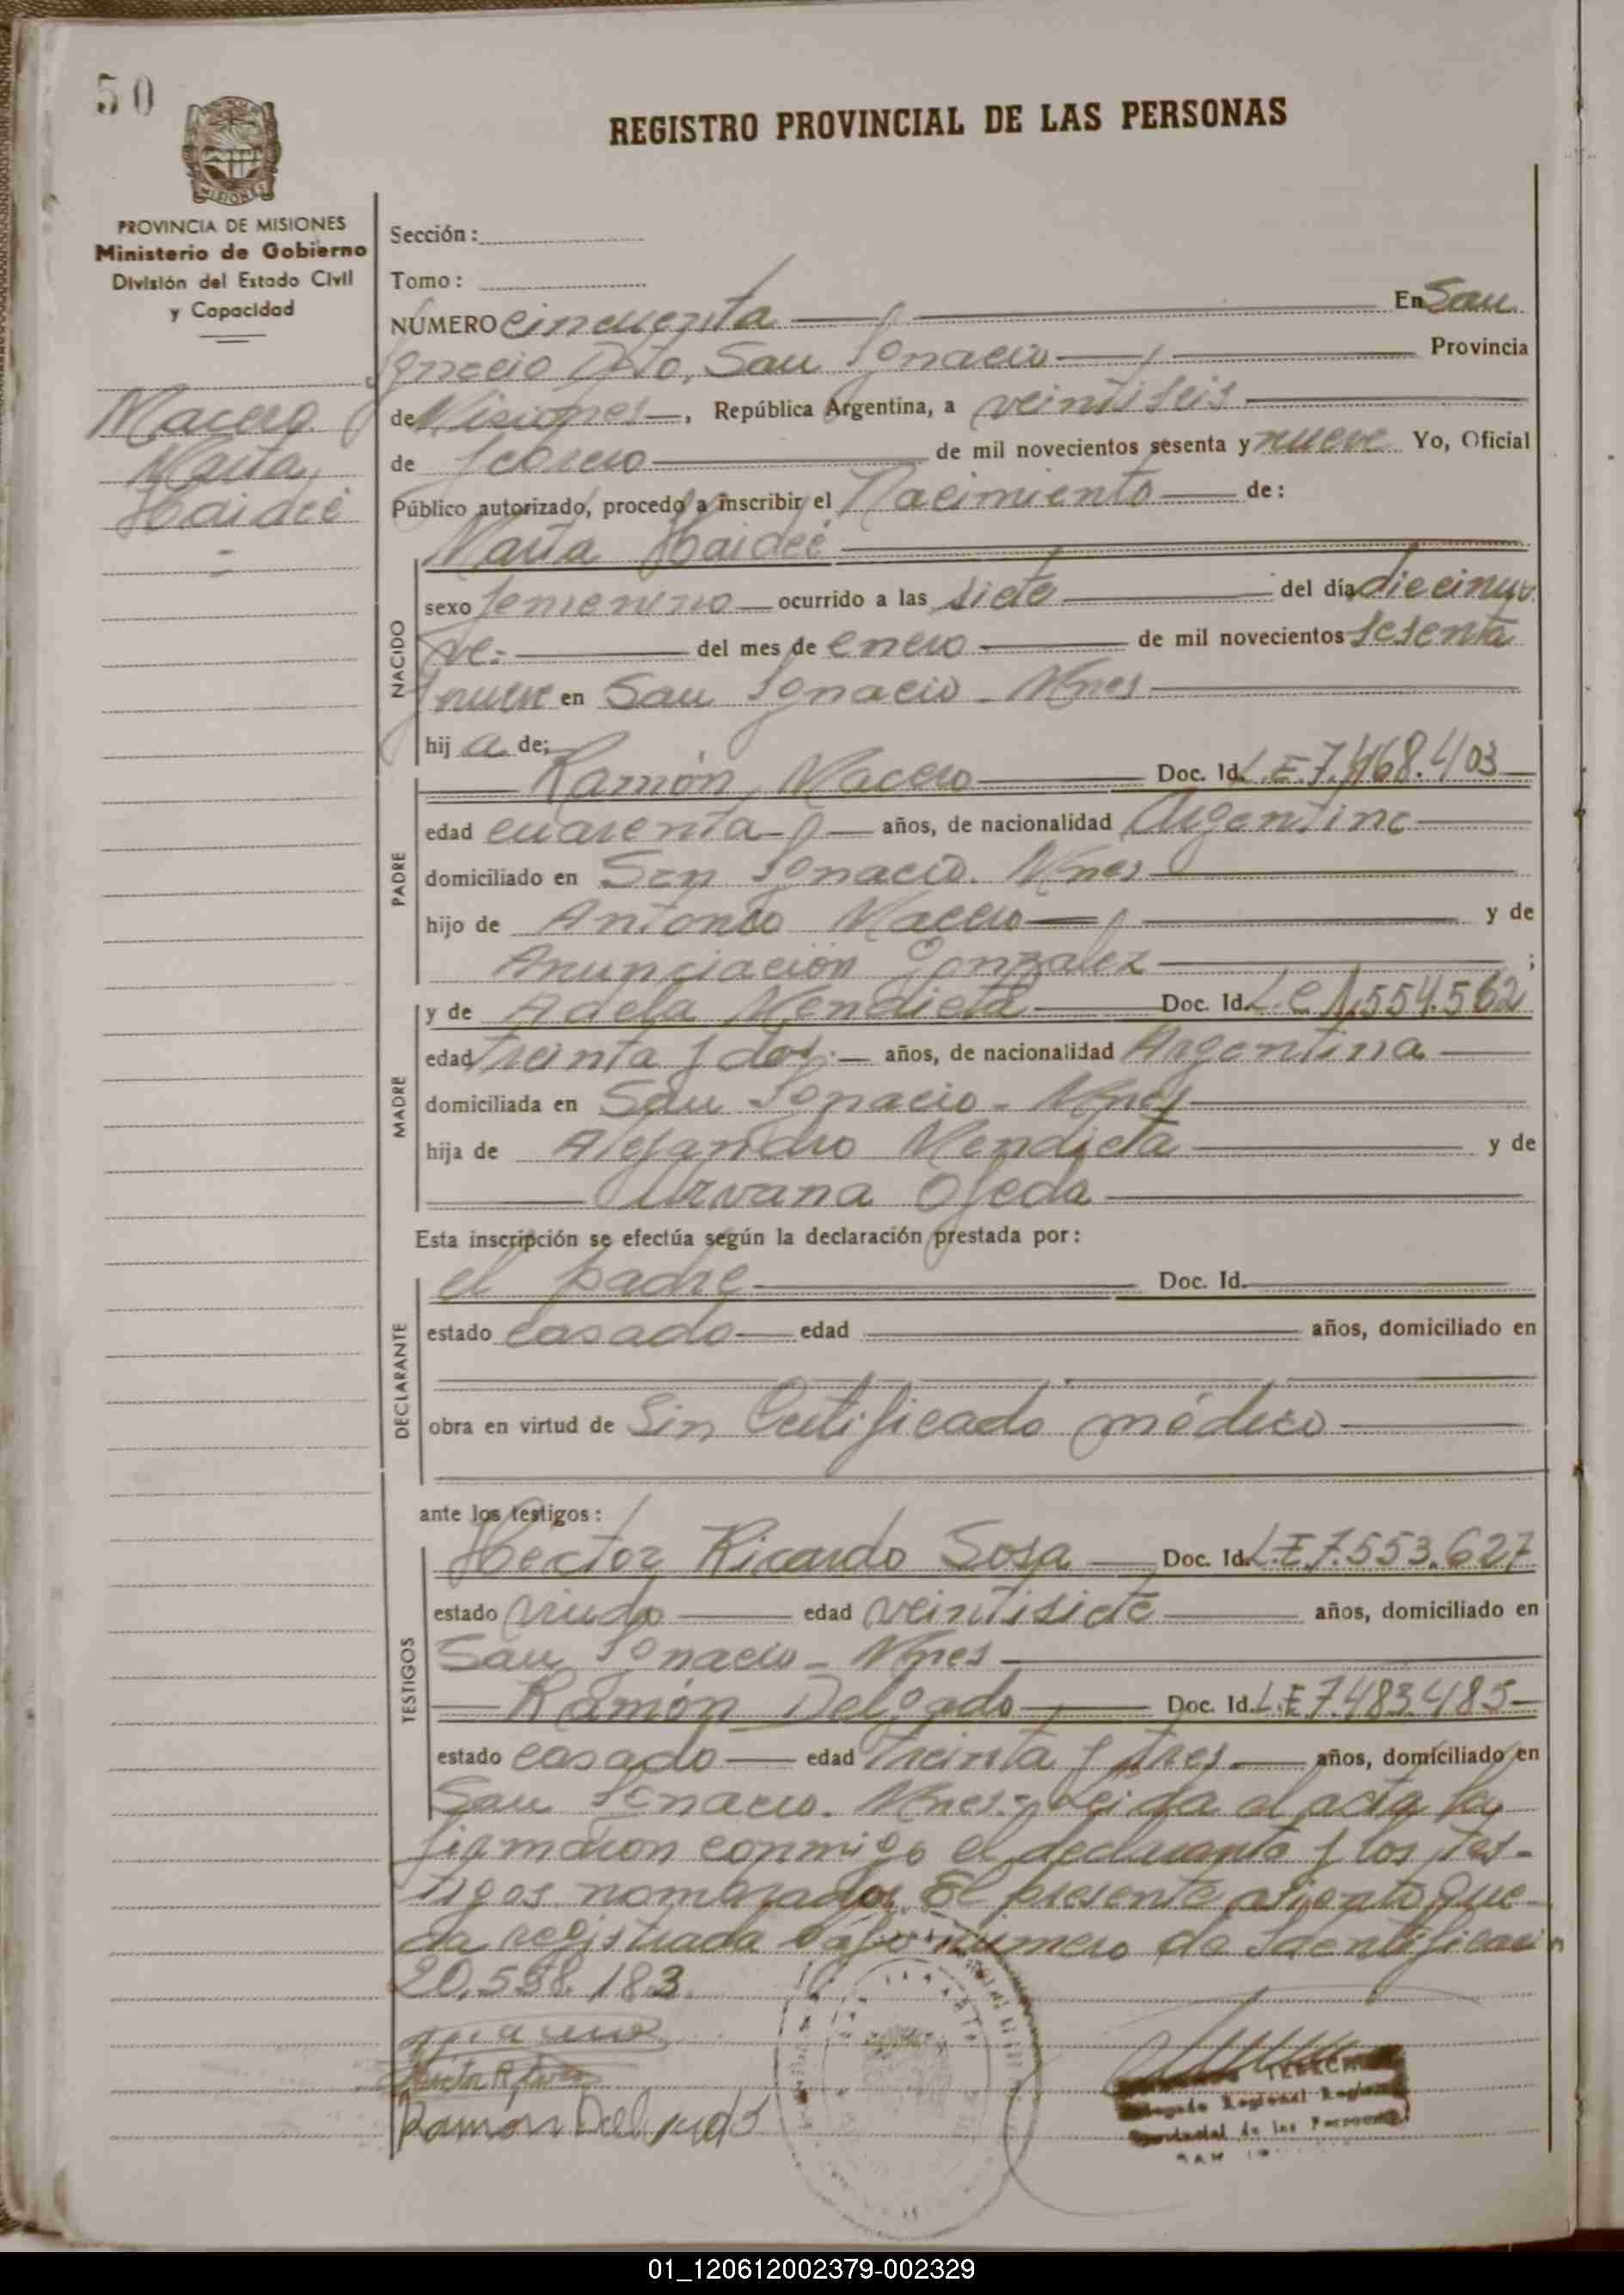 50
REGISTRO PROVINCIAL DE LAS PERSONAS
MISIONES
PROVINCIA DE MISIONES
Ministerio de Gobierno
División del Estado Civil
y Capacidad
Macero
María
Haideé
Sección:
Tomo:
NÚMERO cincuenta En San
Ignacio Dto. San Ignacio Provincia
de Misiones, República Argentina, a veintiseis
de febrero de mil novecientos sesenta y nueve Yo, Oficial
Público autorizado, procedo a inscribir el Nacimiento de:
María Haideé
NACIDO
sexo femenino ocurrido a las siete del día diecinue
ve.- del mes de enero de mil novecientos sesenta
y nueve en San Ignacio - Mnes
hij a de;
Ramón Macero Doc. Id. L.E. 7.468.403
PADRE
edad cuarenta años, de nacionalidad Argentino
domiciliado en San Ignacio. Mnes
hijo de Antonio Macero y de
Anunciación Gonzalez ;
y de Adela Mendieta Doc. Id. L.C 1.554.562
MADRE
edad treinta y dos.- años, de nacionalidad Argentina
domiciliada en San Ignacio - Mnes
hija de Alejandro Mendieta y de
Urvana Ojeda
Esta inscripción se efectúa según la declaración prestada por:
DECLARANTE
el padre Doc. Id.
estado casado edad años, domiciliado en
obra en virtud de Sin Certificado médico
ante los testigos:
TESTIGOS
Hector Ricardo Sosa Doc. Id. L.E 7.553.627
estado viudo edad veintisiete años, domiciliado en
San Ignacio - Mnes
Ramón Delgado Doc. Id. L.E 7.483.485
estado casado edad treinta y tres. años, domiciliado en
San Ignacio. Mnes.- Leida el acta la
firmaron conmigo el declarante y los tes-
tigos nombrados. El presente asiento que
da registrada bajo número de Identificación
20.558.183.
Ramón Delgado
Delegado Regional Registro
Provincial de las Personas
SAN
01_120612002379-002329